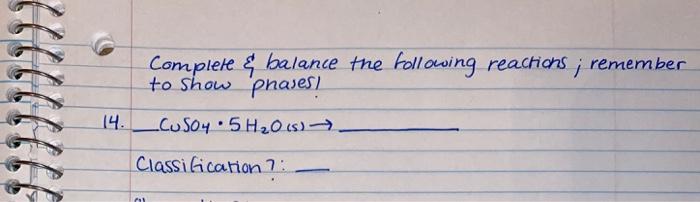 Complete & balance the following reactions ; remember
to show phases!
14. _CuSO4 • 5 H2O (s) → ______
Classification?: __